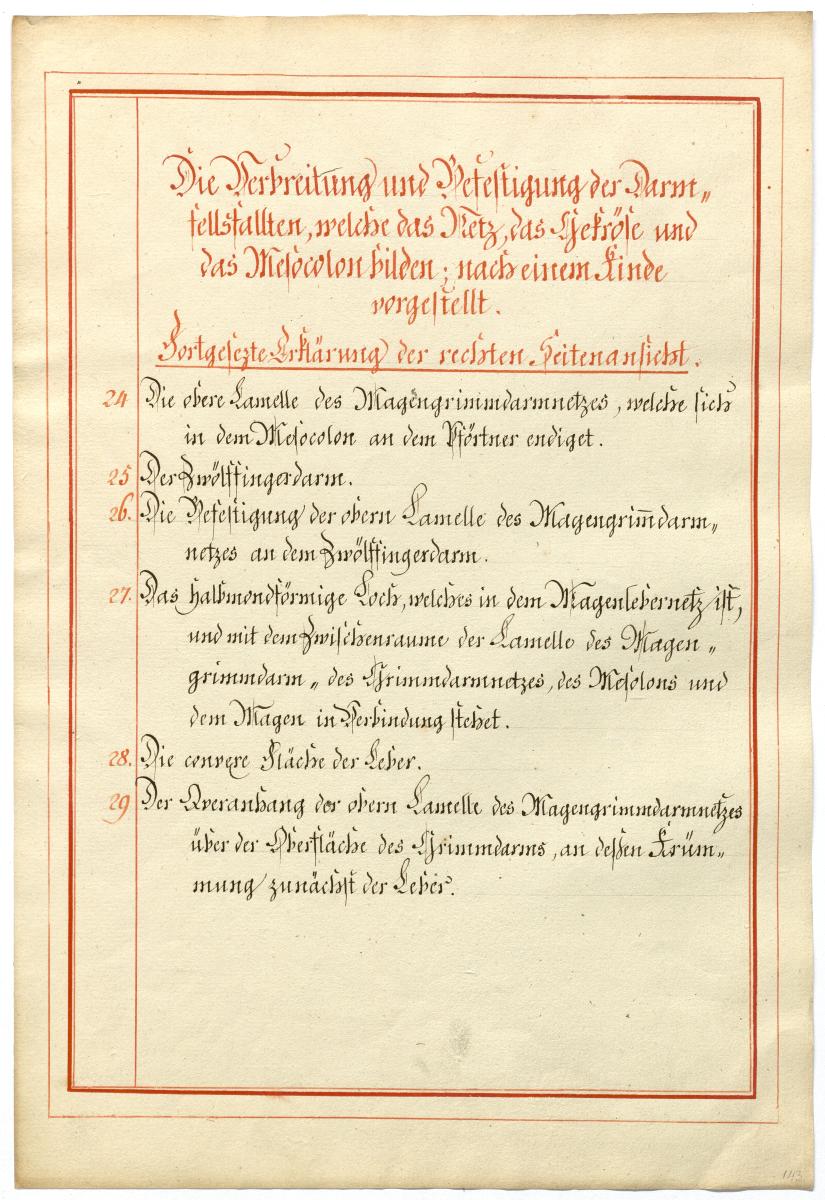 Die Verbreitung und Befestigung der Darm„
fellsfallten, welche das Netz, das Gekröse und
das Mesocolon bilden; nach einem Kinde
vorgestellt.
Fortgesezte Erklärung der rechten Seitenansicht.
24 Die obere Lamelle des Magengrimmdarmnetzes, welche sich
in dem Mesocolon an dem Pförtner endiget.
25 Der Zwölffingerdarm.
26. Die Befestigung der obern Lamelle des Magengrim̅darm„
netzes an dem Zwölffingerdarm.
27. Das halbmondförmige Loch, welches in dem Magenlebernetz ist,
und mit dem Zwischenraume der Lamelle des Magen„
grimmdarm„ des Grimmdarmnetzes, des Mesolons und
dem Magen in Verbindung stehet.
28. Die convexe Fläche der Leber.
29 Der Queranhang der obern Lamelle des Magengrimmdarmnetzes
über der Oberfläche des Grimmdarms, an deßen Krüm„
mung zunächst der Leber.
143